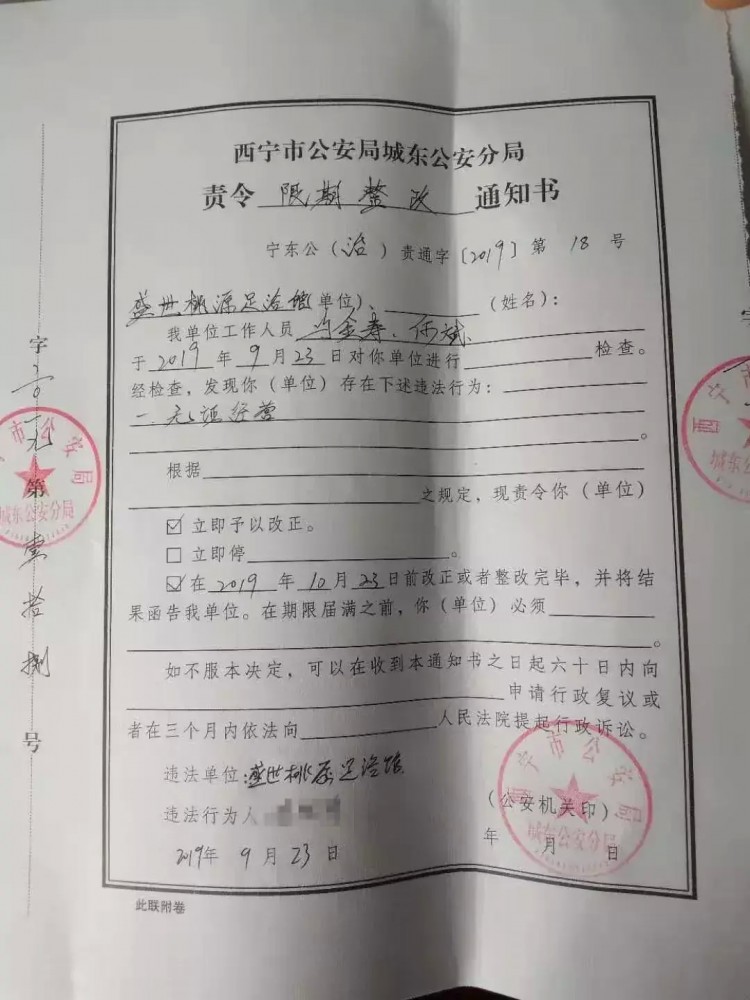 西宁市公安局城东公安分局
责令 限期整改 通知书
宁东公(治)责通字[2019]第 18 号
盛世桃源足浴馆(单位)、 (姓名):
我单位工作人员 马金寿、何斌
于 2019 年 9 月 23 日对你单位进行 检查。
经检查,发现你(单位)存在下述违法行为:
一、无 经营
。
根据
之规定,现责令你(单位)
☑ 立即予以改正。
□ 立即停 。
☑ 在 2019 年 10 月 23 日前改正或者整改完毕,并将结
果函告我单位。在期限届满之前,你(单位)必须
。
如不服本决定,可以在收到本通知书之日起六十日内向
申请行政复议或
者在三个月内依法向 人民法院提起行政诉讼。
违法单位:盛世桃源足浴馆
违法行为人
(公安机关印)
年 月 日
2019年 9 月 23 日
此联附卷
字
二〇一九
第
壹
拾
捌
号
市公安局
城东公安分局
西宁市公安局
城东公安分局
西宁
城东公
字